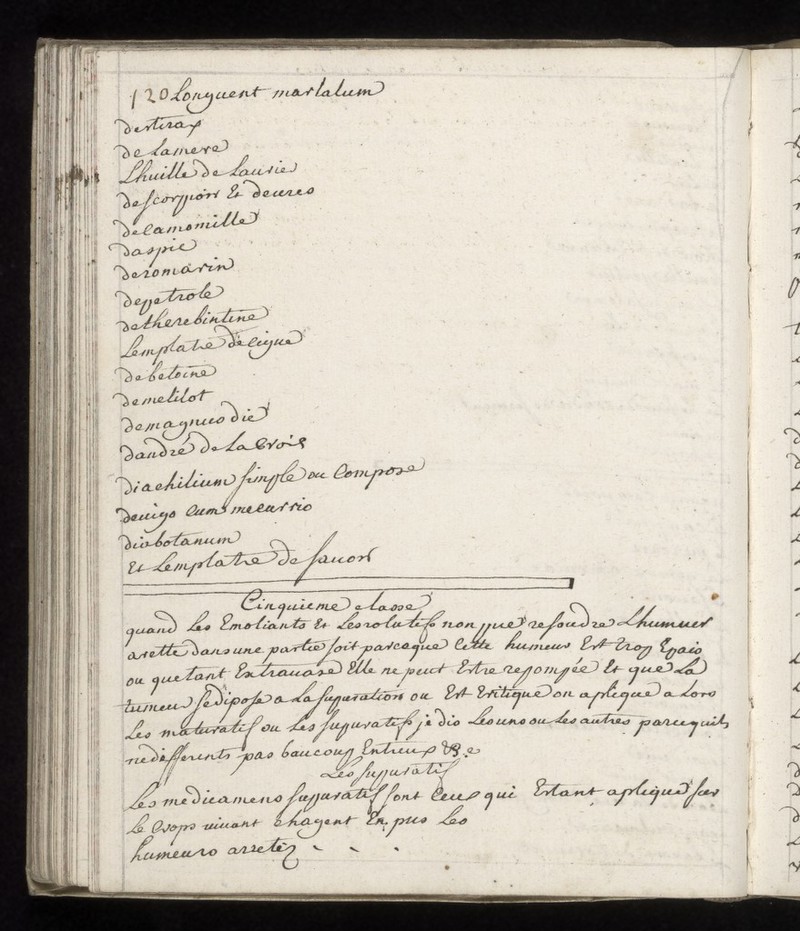 120 Longuent martiatum
destirax
de Lamere
Lhuille de Laurier
descorpion Et deuers
de camomille
daspic
deromarin
depetrole
detherebintine
Lemplatre de cigue
debetoine
demelilot
demagnus die
dandré de La Croix
diachilium simple ou Compose
deuigo Cum mecurrio
diabotanum
Et Lemplatre de sauon
Cinquieme classe
quand Les Emoliants Et Lesrolutifs non pue resoudre Lhumuer
arette dans une partie soit parceque Cette humeur Est trop Epais
ou quetant Extrauase Elle ne peut Estre repompée Et que La
tumeur sedispose a La supuration ou Est Critique on aplique a Lors
Les maturatif ou Les supuratifs je dis Lesuns ou Les autres parcequils
nedifferents pas baucoup Entreux &c
Les supuratif
Les medicamens supuratif sont Ceux qui Estant aplique sur
Le Corps uiuant chagent En pus Les
humeurs arretéz